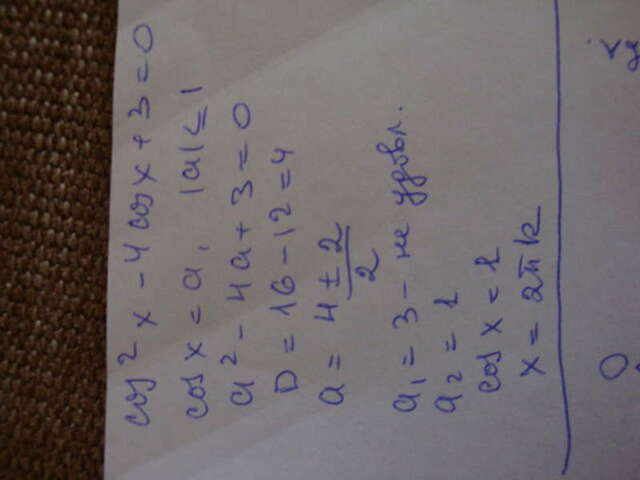 cos² x - 4 cos x + 3 = 0
cos x = a, |a| ≤ 1
a² - 4a + 3 = 0
D = 16 - 12 = 4
a = (4 ± 2)/2
a₁ = 3 - не удовл.
a₂ = 1
cos x = 1
x = 2πk